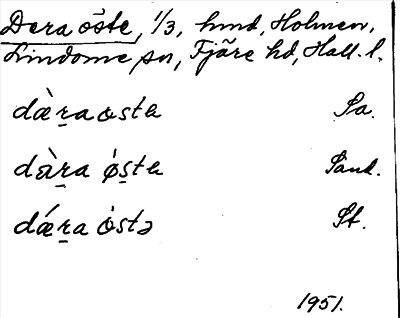 Dera öste, 1/3, hmd, Holmen,
Lindome sn, Fjäre hd, Hall. l.
dæ̀ṟa østa Sa.
dàṟa ø̀s̱ta Sand.
dǽṟa östə St.
1951.